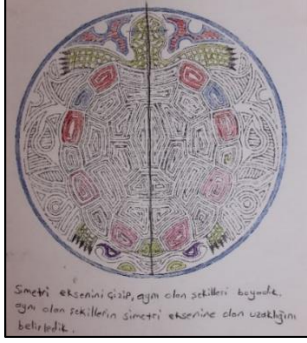 Simetri eksenini çizip, aynı olan şekilleri boyadık.
aynı olan şekillerin simetri eksenine olan uzaklığını
belirledik.